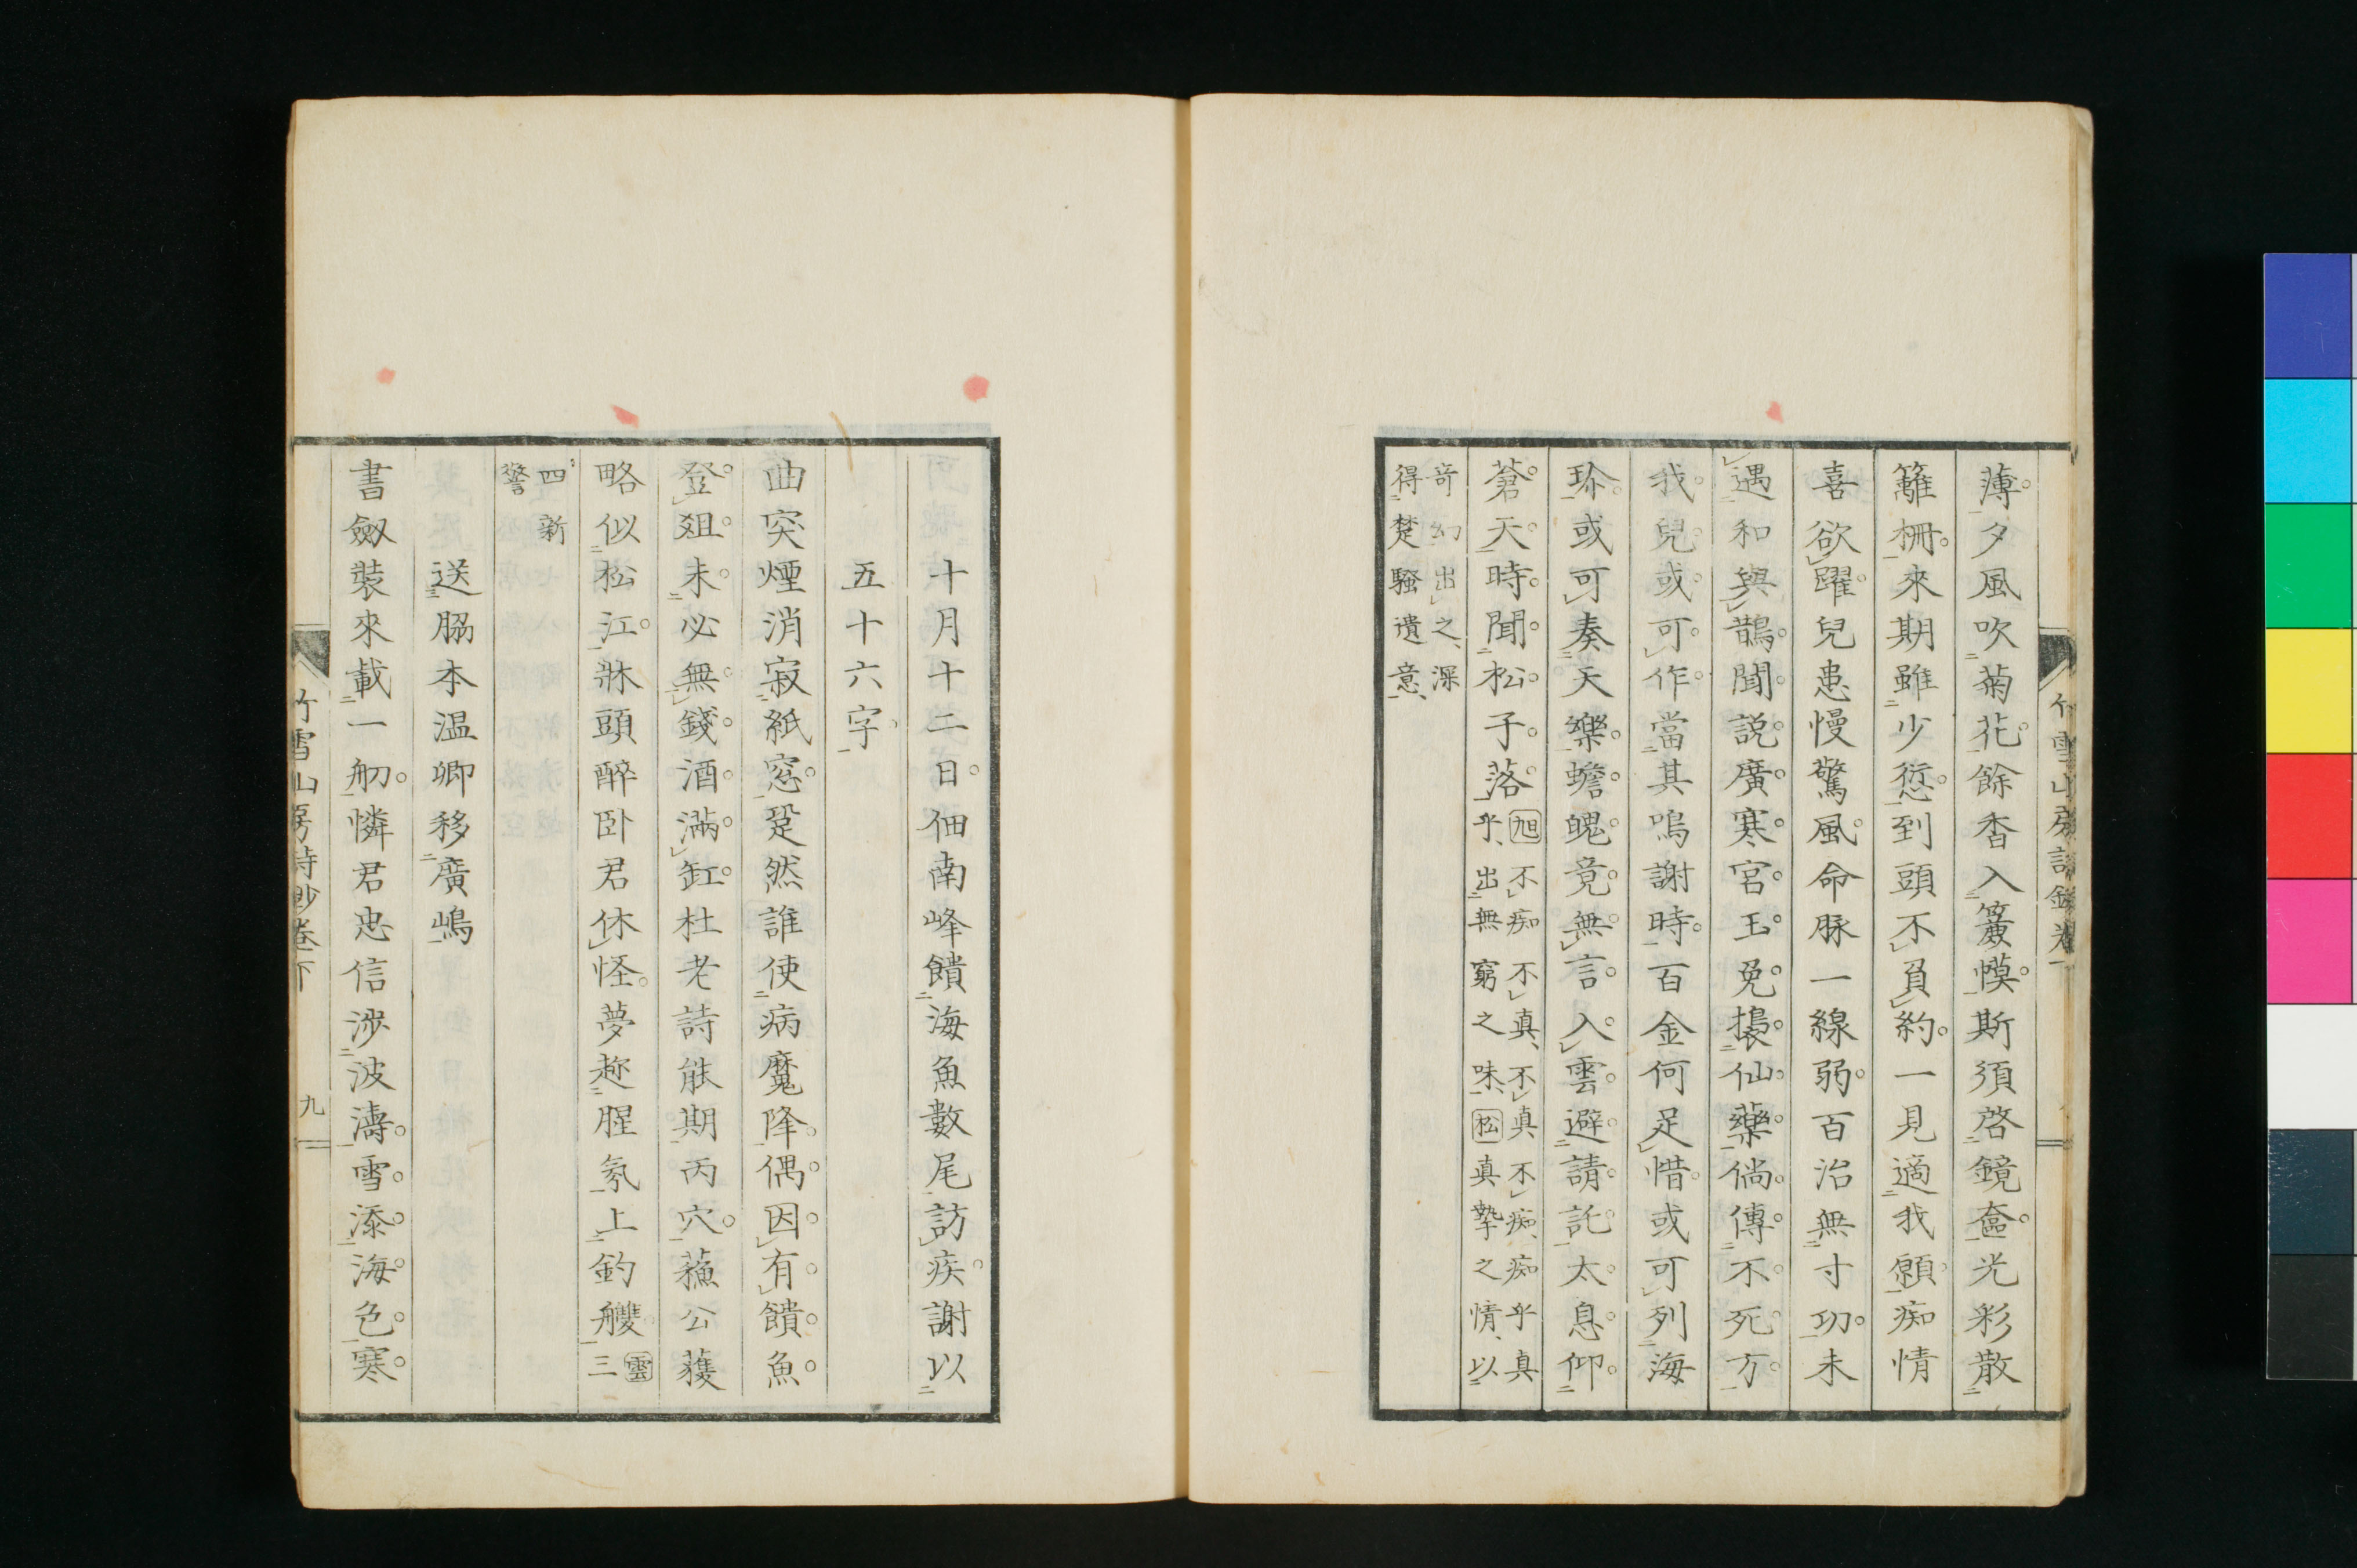 薄夕風吹菊花餘香入簾幙斯須啓鏡奩光彩散
籬柵來期雖少愆到頭不負約一見適我願痴情
喜欲躍兒患慢驚風命脉一線弱百治無寸功未
遇和與鵲聞説廣寒宮玉兔擣仙藥倘傳不死方
我兒或可作當其嗚謝時百金何足惜或可列海
珍或可奏天樂蟾魄竟無言入雲避請託太息仰
蒼天時聞松子落
旭不痴不真、不真、不痴、痴乎真
乎、出無窮之味、松真摯之情、以
奇幻出之、深
得楚騷遺意、
十月十二日佃南峰饋海魚數尾訪疾謝以
五十六字
曲突煙消寂紙窓跫然誰使病魔降偶因有饋魚
登俎未必無錢酒滿缸杜老詩能期丙穴蘓公獲
略似松江牀頭醉臥君休怪夢趂腥氛上釣艭
雲三
四新
警
送脇本温卿移廣嶋
書劔裝來載一舠憐君忠信渉波濤雪添海色寒
竹雪山房詩鈔卷下
九